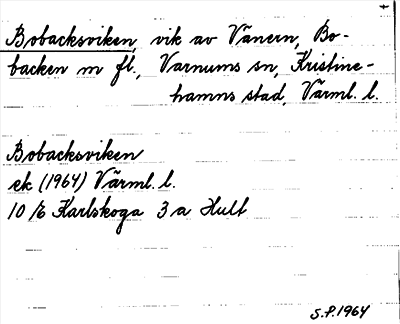 Bobacksviken, vik av Vänern, Bo-
backen m fl., Varnums sn, Kristine-
hamns stad, Värml. l.
Bobacksviken
ek (1964) Värml. l.
10 E Karlskoga 3 a Hult
S.P. 1964